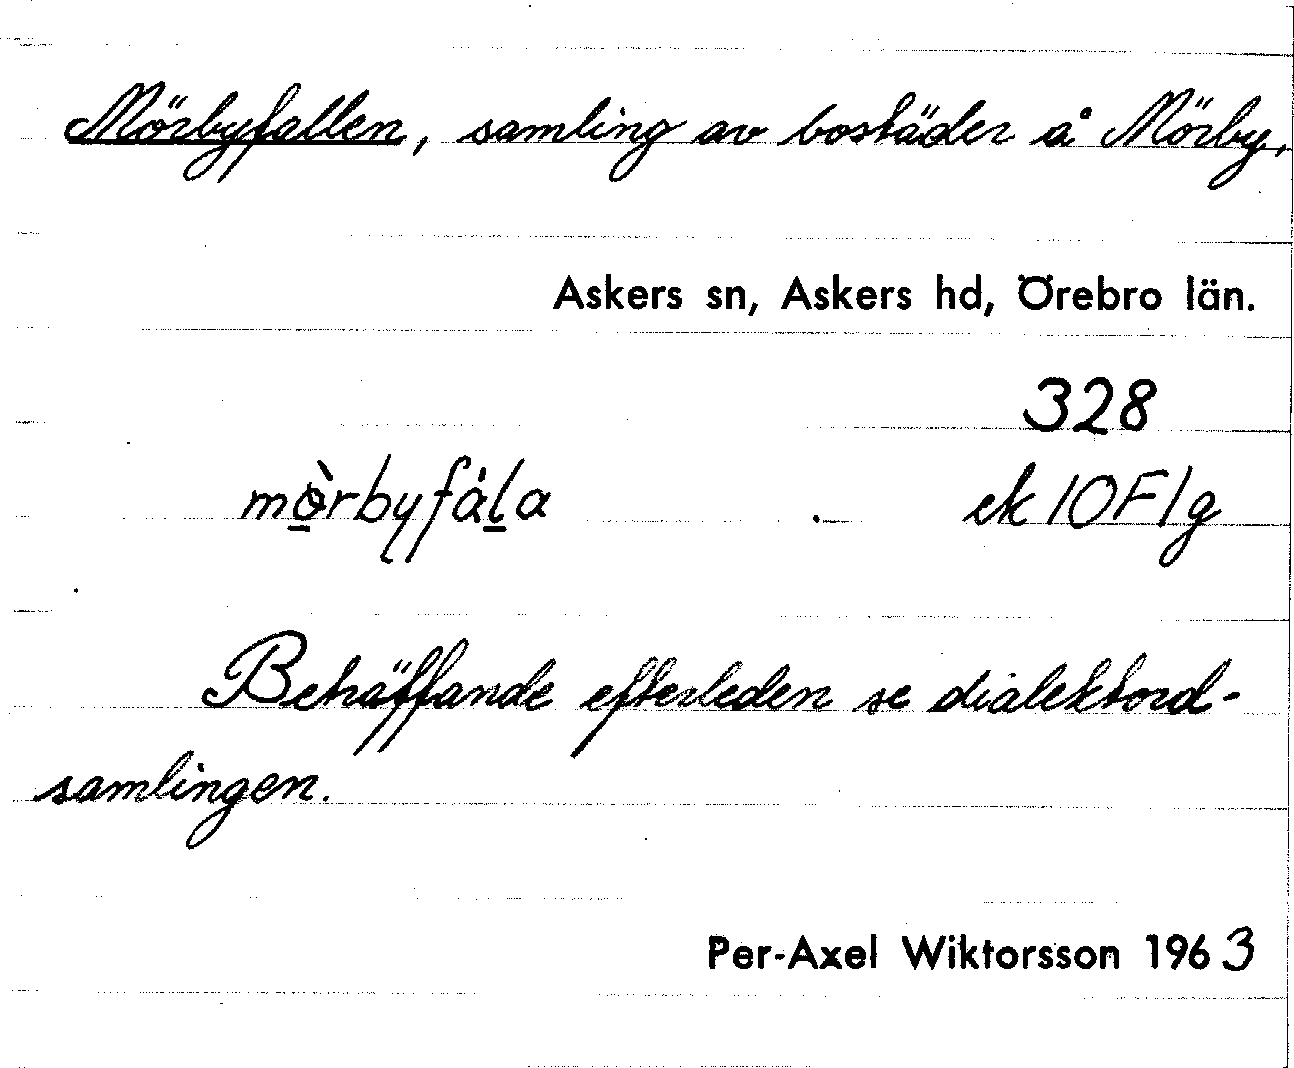 Mörbyfallen, samling av bostäder å Mörby.
Askers sn, Askers hd, Örebro län.
328
mö̀rbyfàla ek 10F1g
Beträffande efterleden se dialektord-
samlingen.
Per-Axel Wiktorsson 1963